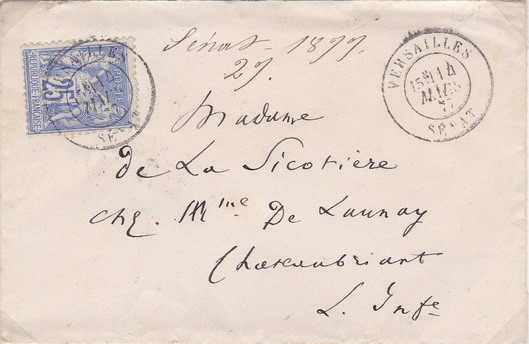 Sénat - 1877
27.
VERSAILLES
14
MARS
77
SENAT
25
POSTES
REPUBLIQUE FRANÇAISE
Madame
de La Sicotière
chez Mme De Launay
Chateaubriant
L. Infe